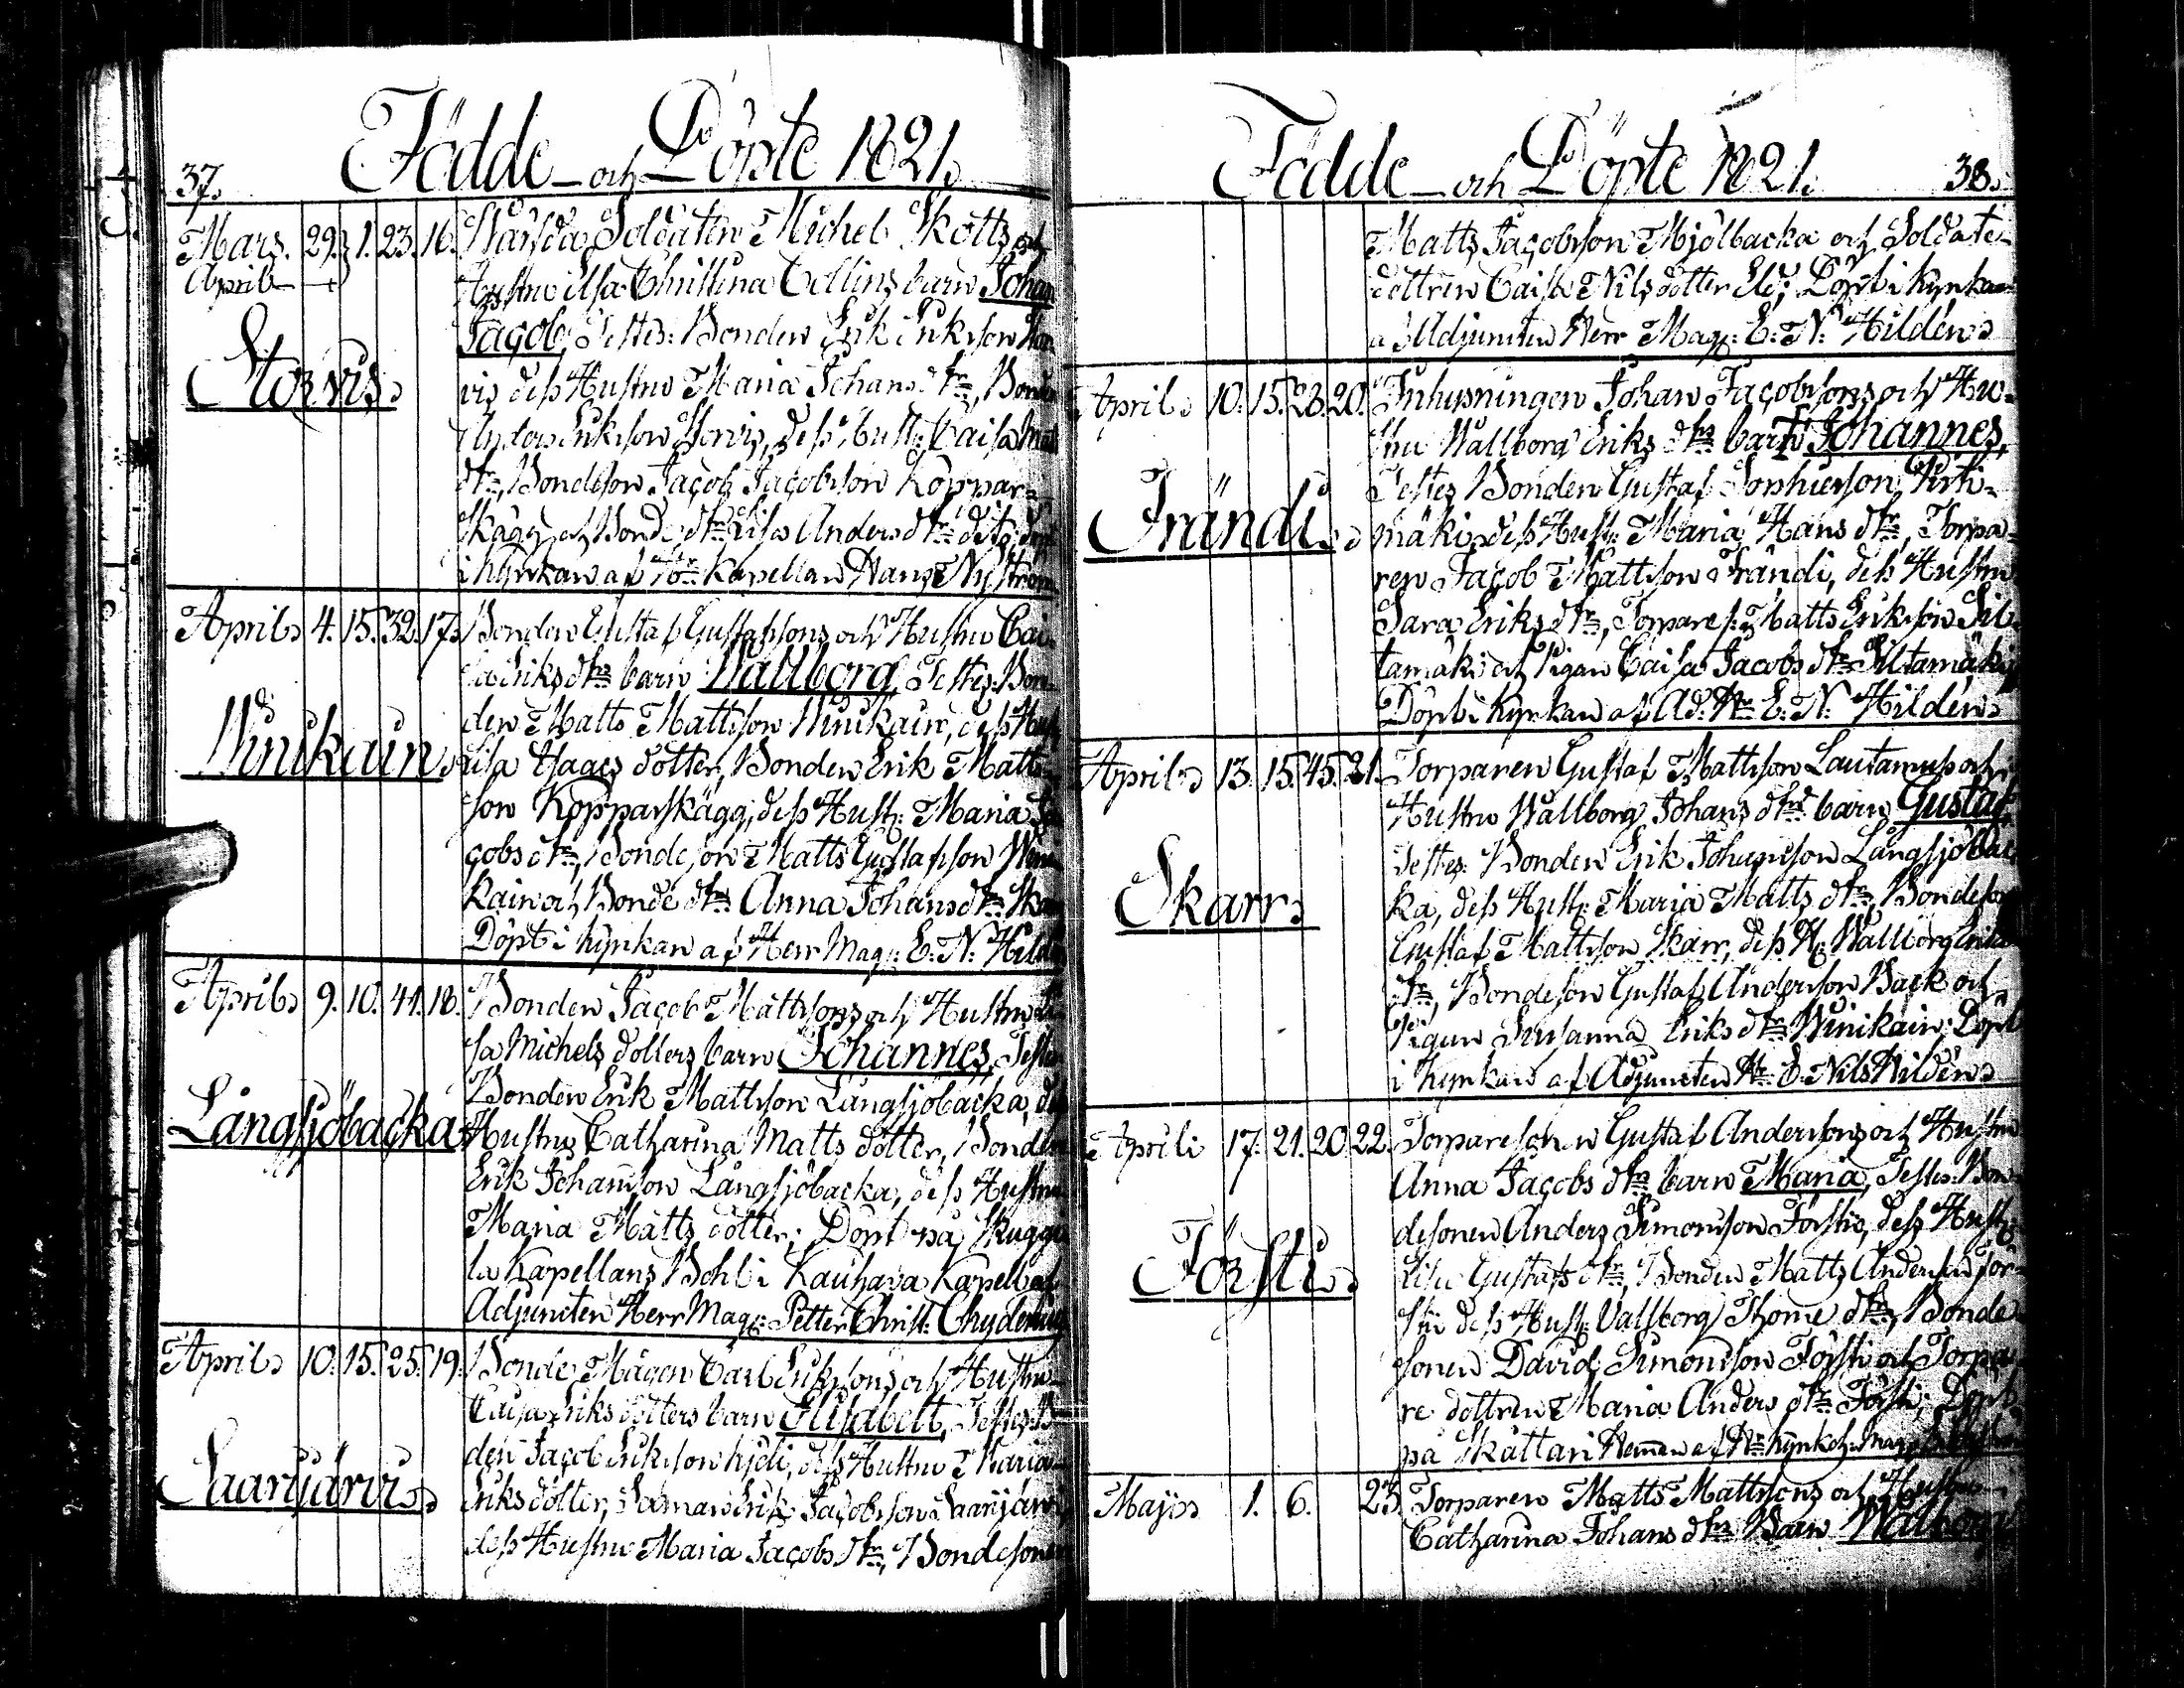 37.
Födde och Döpte 1821.
Mars. 29. 1. 23. 16. Soldaten Michel Skotts och
April Hustru Christina Collins barn Johan
Jacob, Testes: Bonden Erik Erikson Stor-
Storvis.
vis dess Hustru Maria Johans dtr, Bonden
Anders Erikson Storvis, dess Hust: Caisa Matts
dtr, Bondeson Jacob Jacobsson Koppar-
skägg och Bonde dtr Lisa Anders dtr
i Kyrkan af Hr Kapellan Nyström
April 4. 15. 32. 17. Bonden Gustaf Gustafssons och Hustru Cai-
sa Eriks dtrs barn Wallborg, Testes: Bon-
den Matts Mattsson Winikain, dess Hust
Winikain
Lisa Isaacs dotter, Bonden Erik Matts-
son Kopparskägg, dess Hust: Maria Ja-
cobs dtr, Bondeson Matts Gustafsson Wini-
kain och Bonde dtr Anna Johans dtr
Döpt i Kyrkan af Herr Mag: E. N. Hildén
April 9. 10. 41. 18. Bonden Jacob Mattssons och Hustru Li-
sa Michels dotters barn Johannes, Testes
Bonden Erik Mattsson Långsjöbacka, dess
Långsjöbacka
Hustru Catharina Matts dotter, Bonden
Erik Johansson Långsjöbacka, dess Hustru
Maria Matts dotter; Döpt på
Kapellans Bohl i Kauhava Kapell af
Adjuncten Herr Mag: Petter Christ: Chydenius
April 10. 15. 25. 19. Bonde Mågen Carl Eriksons och Hustru
Caisa Eriks dotters barn Elisabett, Testes: Bon-
den Jacob Erikson dess Hustru Maria
Saarijärvi
Eriks dotter, Erik Jacobsson Saarijärvi
dess Hustru Maria Jacobs dtr, Bondesonen
Födde och Döpte 1821.
38.
Matts Jacobsson Mjölbacka och Soldate-
dottren Caisa Nils dotter Döpt i Kyrkan
af Adjuncten Herr Mag: E. N. Hildén
April 10. 15. 28. 20. Inhysningen Johan Jacobssons och Hu-
stru Wallborg Eriks dtrs barn Johannes,
Testes Bonden Gustaf
Frändi
mäki, dess Hust: Maria Hans dtr, Torpa-
ren Jacob Mattsson Frändi, dess Hustru
Sara Eriks dtr, Torpares: Matts Erikson Sil-
tamäki och Pigan Caisa Jacobs dtr Siltamäki
Döpt i Kyrkan af Ad: Hr E. N. Hildén
April 13. 15. 45. 21. Torparen Gustaf Mattsson Lautamus och
Hustru Wallborg Johans dtrs barn Gustaf,
Testes: Bonden Erik Johansson Långsjöbac-
Skarr
ka, dess Hust: Maria Matts dtr, Bondeson
Gustaf Mattsson Skarr, dess H: Wallborg Eriks
dtr, Bondeson Gustaf Andersson Back och
Pigan Susanna Eriks dtr Winikain; Döpt
i Kyrkan af Adjuncten Hr E. Nils Hildén
April 17. 21. 20. 22. Torparesonen Gustaf Anderssons och Hustru
Anna Jacobs dtrs barn Maria, Testes: Bon-
desonen Anders Simonsson Försti, dess Hust:
Försti
Lisa Gustafs dtr, Bonden Matts Andersson För-
sti dess Hust: Valborg Thome dtr, Bonde
sonen David Simonsson Försti och Torpa-
re dottren Maria Anders dtr Försti; Döpt
på Skattari Hemman af Hr
Majo 1. 6. 23. Torparen Matts Mattssons och Hustru
Catharina Johans dtrs Barn Walborg